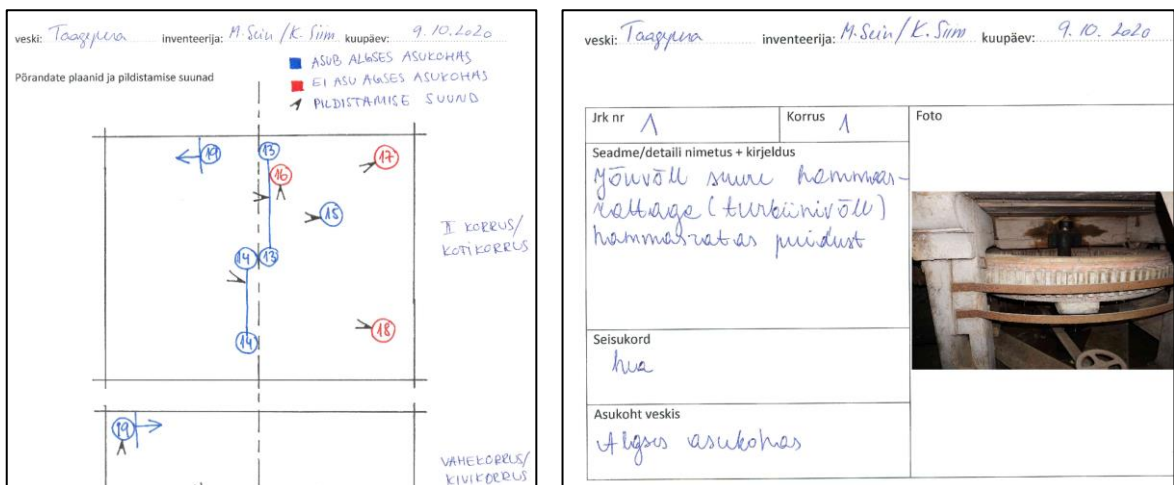 veski: Taagepera inventeerija: M. Sein / K. Siim kuupäev: 9.10.2020
Põrandate plaanid ja pildistamise suunad
ASUB ALGSES ASUKOHAS
EI ASU ALGSES ASUKOHAS
PILDISTAMISE SUUND
19
13
17
16
15
II KORRUS/
KOTIKORRUS
14
13
18
14
19
VAHEKORRUS/
KIVIKORRUS
veski: Taagepera inventeerija: M. Sein / K. Siim kuupäev: 9.10.2020
Jrk nr 1
Korrus 1
Foto
Seadme/detaili nimetus + kirjeldus
Jõuvõll suure hammas-
rattaga (turbiinivõll)
hammasratas puidust
Seisukord
hea
Asukoht veskis
Algses asukohas